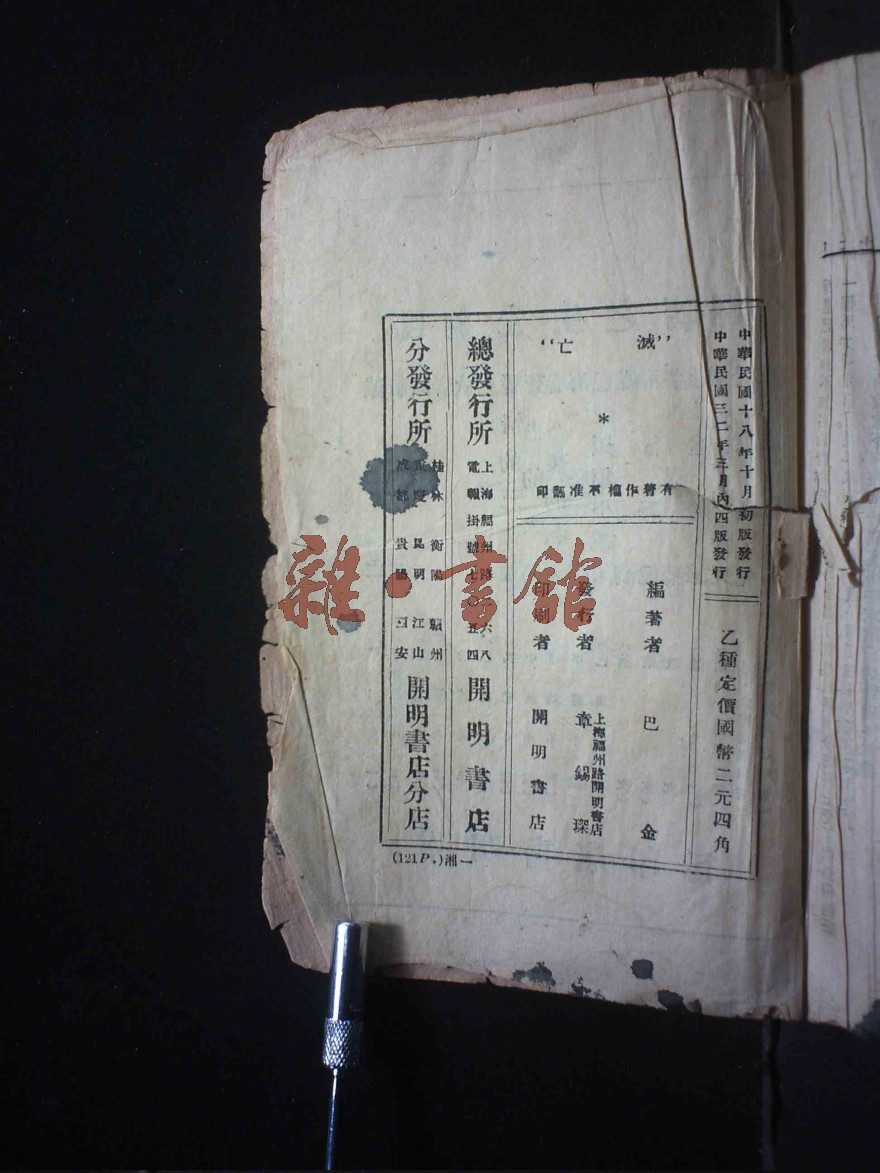 中華民國十八年十月初版發行
中華民國三二年三月內四版發行
乙種定價國幣二元四角
“滅亡”
*
有著作權不准翻印
編著者 巴金
發行者 章錫琛
上海福州路開明書店
印刷者 開明書店
總發行所
上海福州路
電報掛號七〇五四
開明書店
分發行所
桂林 衡陽 贛州
重慶 昆明 江山
成都 貴陽 安
開明書店分店
(121P.)湘一
雜·書館